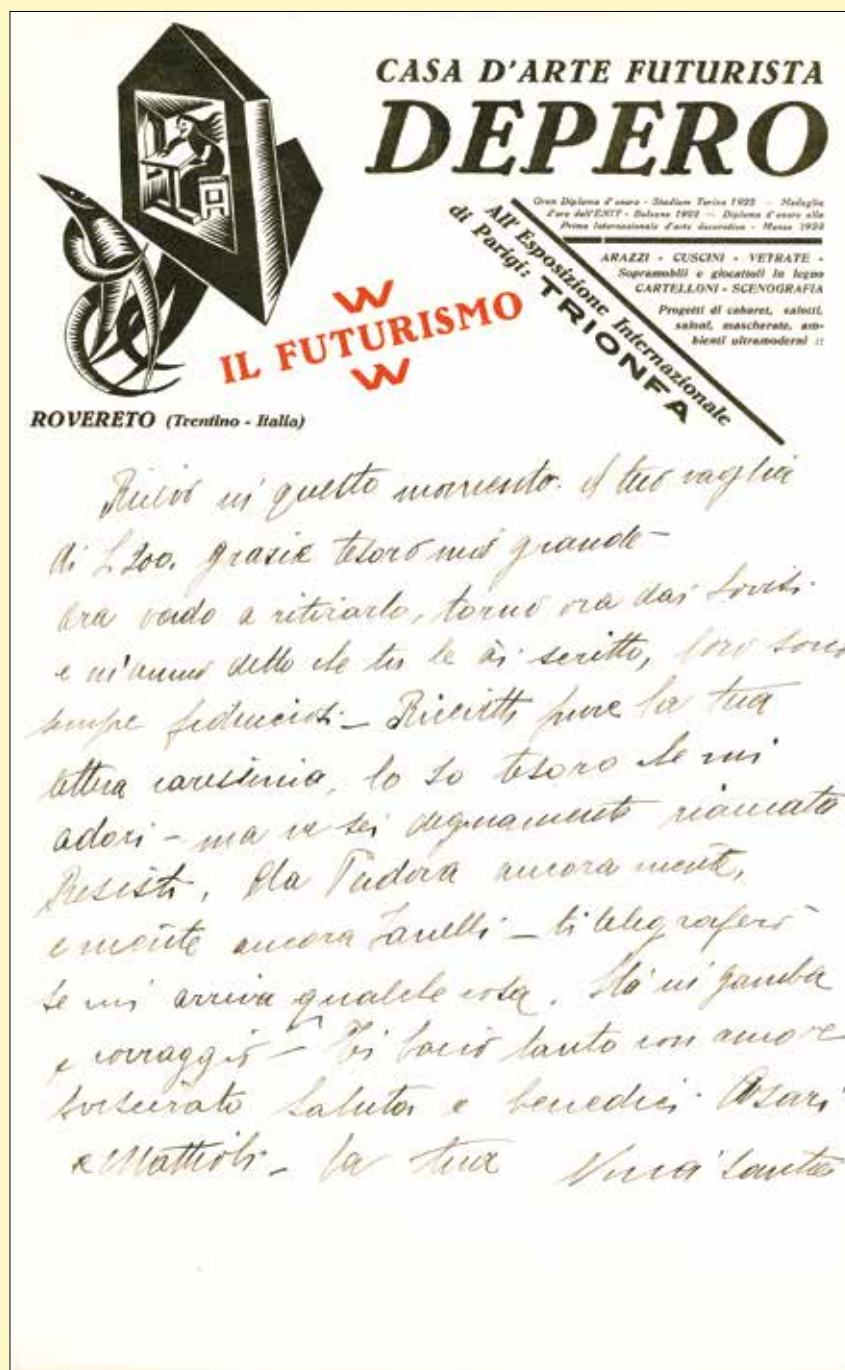 CASA D'ARTE FUTURISTA
DEPERO
Gran Diploma d'onore - Stadium Torino 1922 — Medaglia
d'oro dell'ENIT - Bolzano 1922 — Diploma d'onore alla
Prima Internazionale d'arte decorativa - Monza 1923
All' Esposizione Internazionale
di Parigi: TRIONFA
ARAZZI - CUSCINI - VETRATE -
Sopramobili e giocattoli in legno
CARTELLONI - SCENOGRAFIA
Progetti di cabaret, salotti,
saloni, mascherate, am-
bienti ultramoderni ::
W
IL FUTURISMO
W
ROVERETO (Trentino - Italia)
in questo momento il tuo vaglia
di L 200. grazie tesoro mio grande -
ora vado a ritirarlo, torno ora dai
e m'anno detto che tu le ài scritto, loro sono
sempre fiduciosi - pure la tua
lettera carissima, lo so tesoro che mi
adori - ma ne sei degnamente riamato
Resisti, Da ancora niente,
e niente ancora Zanelli - ti telegraferò
se mi arriva qualche cosa. Stà in gamba
e corraggio - Ti bacio tanto con amore
saluta e benedici Asari
e Mattioli - la tua